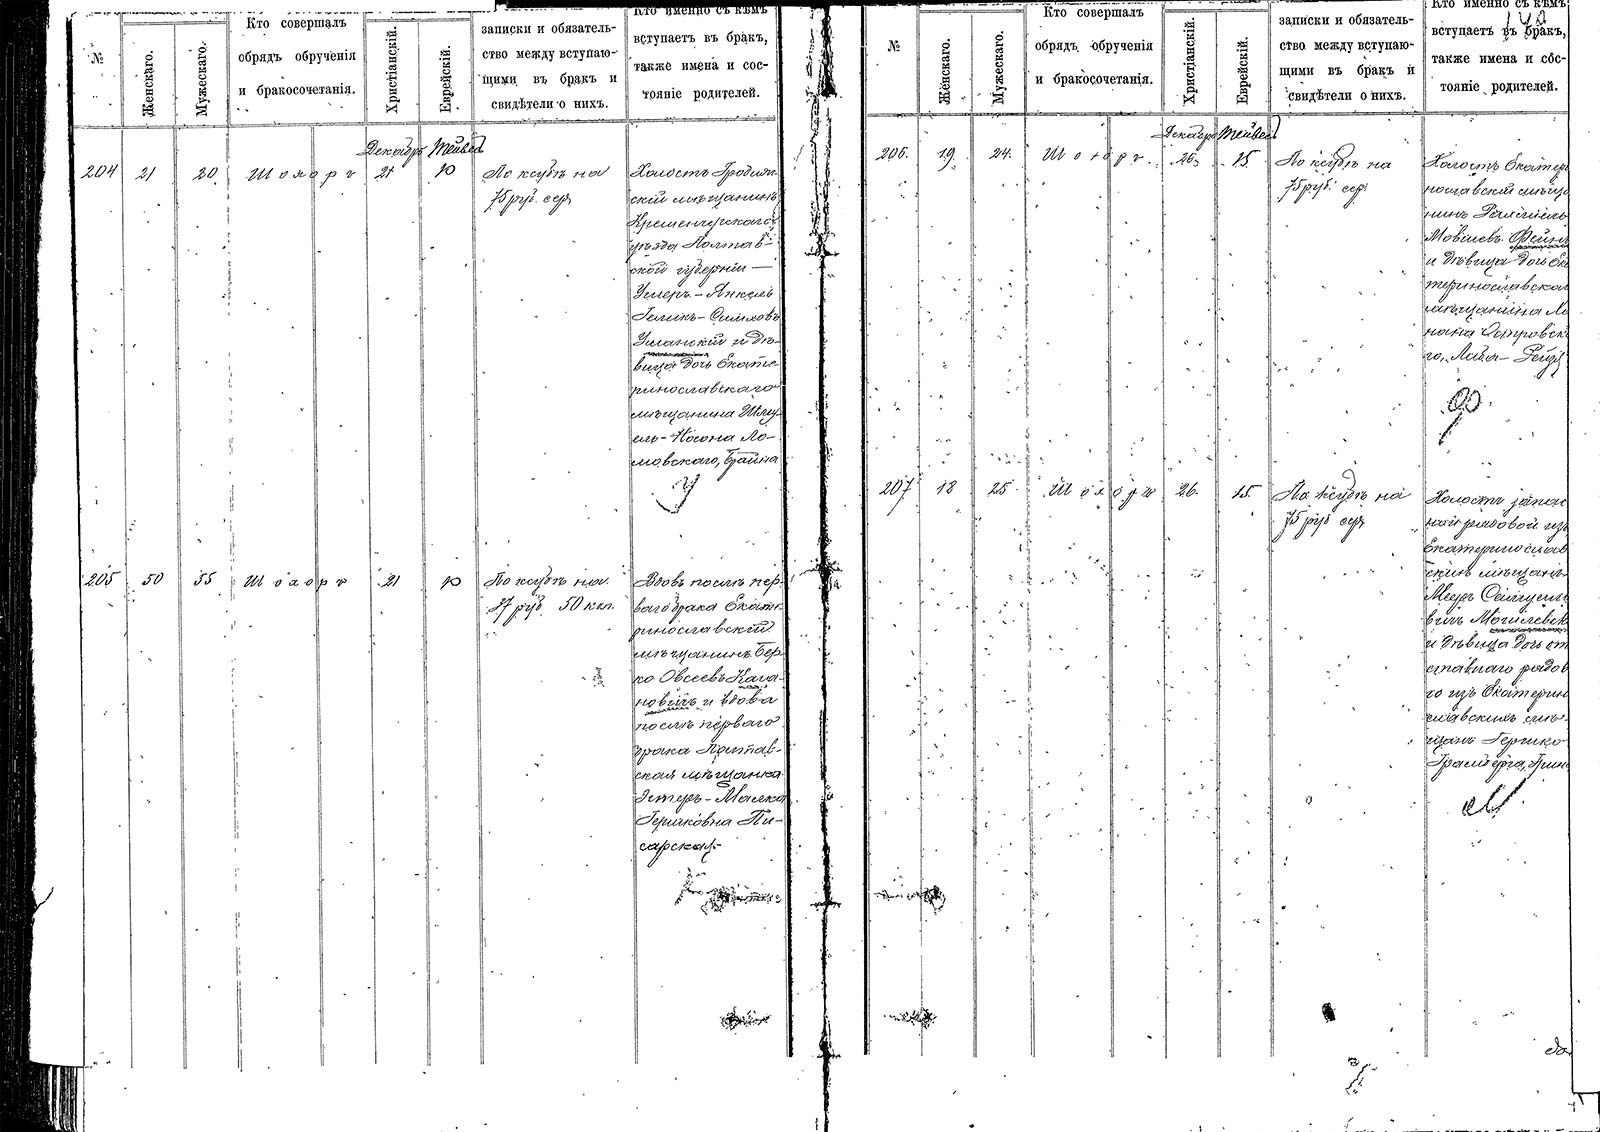 №
Женскаго.
Мужескаго.
Кто совершалъ
обрядъ обрученія
и бракосочетанія.
Христіанскій.
Еврейскій.
записки и обязатель-
ство между вступаю-
щими въ бракъ и
свидѣтели о нихъ.
Кто именно съ кѣмъ
вступаетъ въ бракъ,
также имена и сос-
тояніе родителей.
Декабрь Тейвесъ
204 21 20 21 10
По ксубѣ на
75 руб. сер.
Холостъ
скій мѣщанинъ
Кременчугскаго
уѣзда Полтав-
ской губерніи —
Янкель
Уманскій и дѣ-
вица дочь Екате-
ринославскаго
мѣщанина Шму-
ель-Носона Ло-
мовскаго, Брайна
У
205 50 55 21 10
По ксубѣ на
37 руб. 50 коп.
Вдовъ послѣ пер-
ваго брака Екате-
ринославскій
мѣщанинъ Бер-
ко Овсеевъ Кага-
новичъ и вдова
послѣ перваго
брака Полтав-
ская мѣщанка
Эстеръ-Малка
Гершковна Пи-
сарская
К
№
Женскаго.
Мужескаго.
Кто совершалъ
обрядъ обрученія
и бракосочетанія.
Христіанскій.
Еврейскій.
записки и обязатель-
ство между вступаю-
щими въ бракъ и
свидѣтели о нихъ.
Кто именно съ кѣмъ
вступаетъ въ бракъ,
также имена и сос-
тояніе родителей.
Декабрь Тейвесъ
206. 19 24. 26. 15
По ксубѣ на
75 руб. сер.
Холостъ Екатери
нославскій мѣща
нинъ
Мовшевъ Фейн
и дѣвица дочь Ека
теринославскаго
мѣщанина
Островска
го, Лаја-Рейз
Ф.
207 18 25 26. 15.
По ксубѣ на
75 руб сер
Холостъ запас
ной рядовой изъ
Екатеринослав
скихъ мѣщанъ
вичъ Могилевск
и дѣвица дочь от
ставнаго рядов
го изъ Екатерин
славскихъ мѣ-
щанъ Гершко
М.